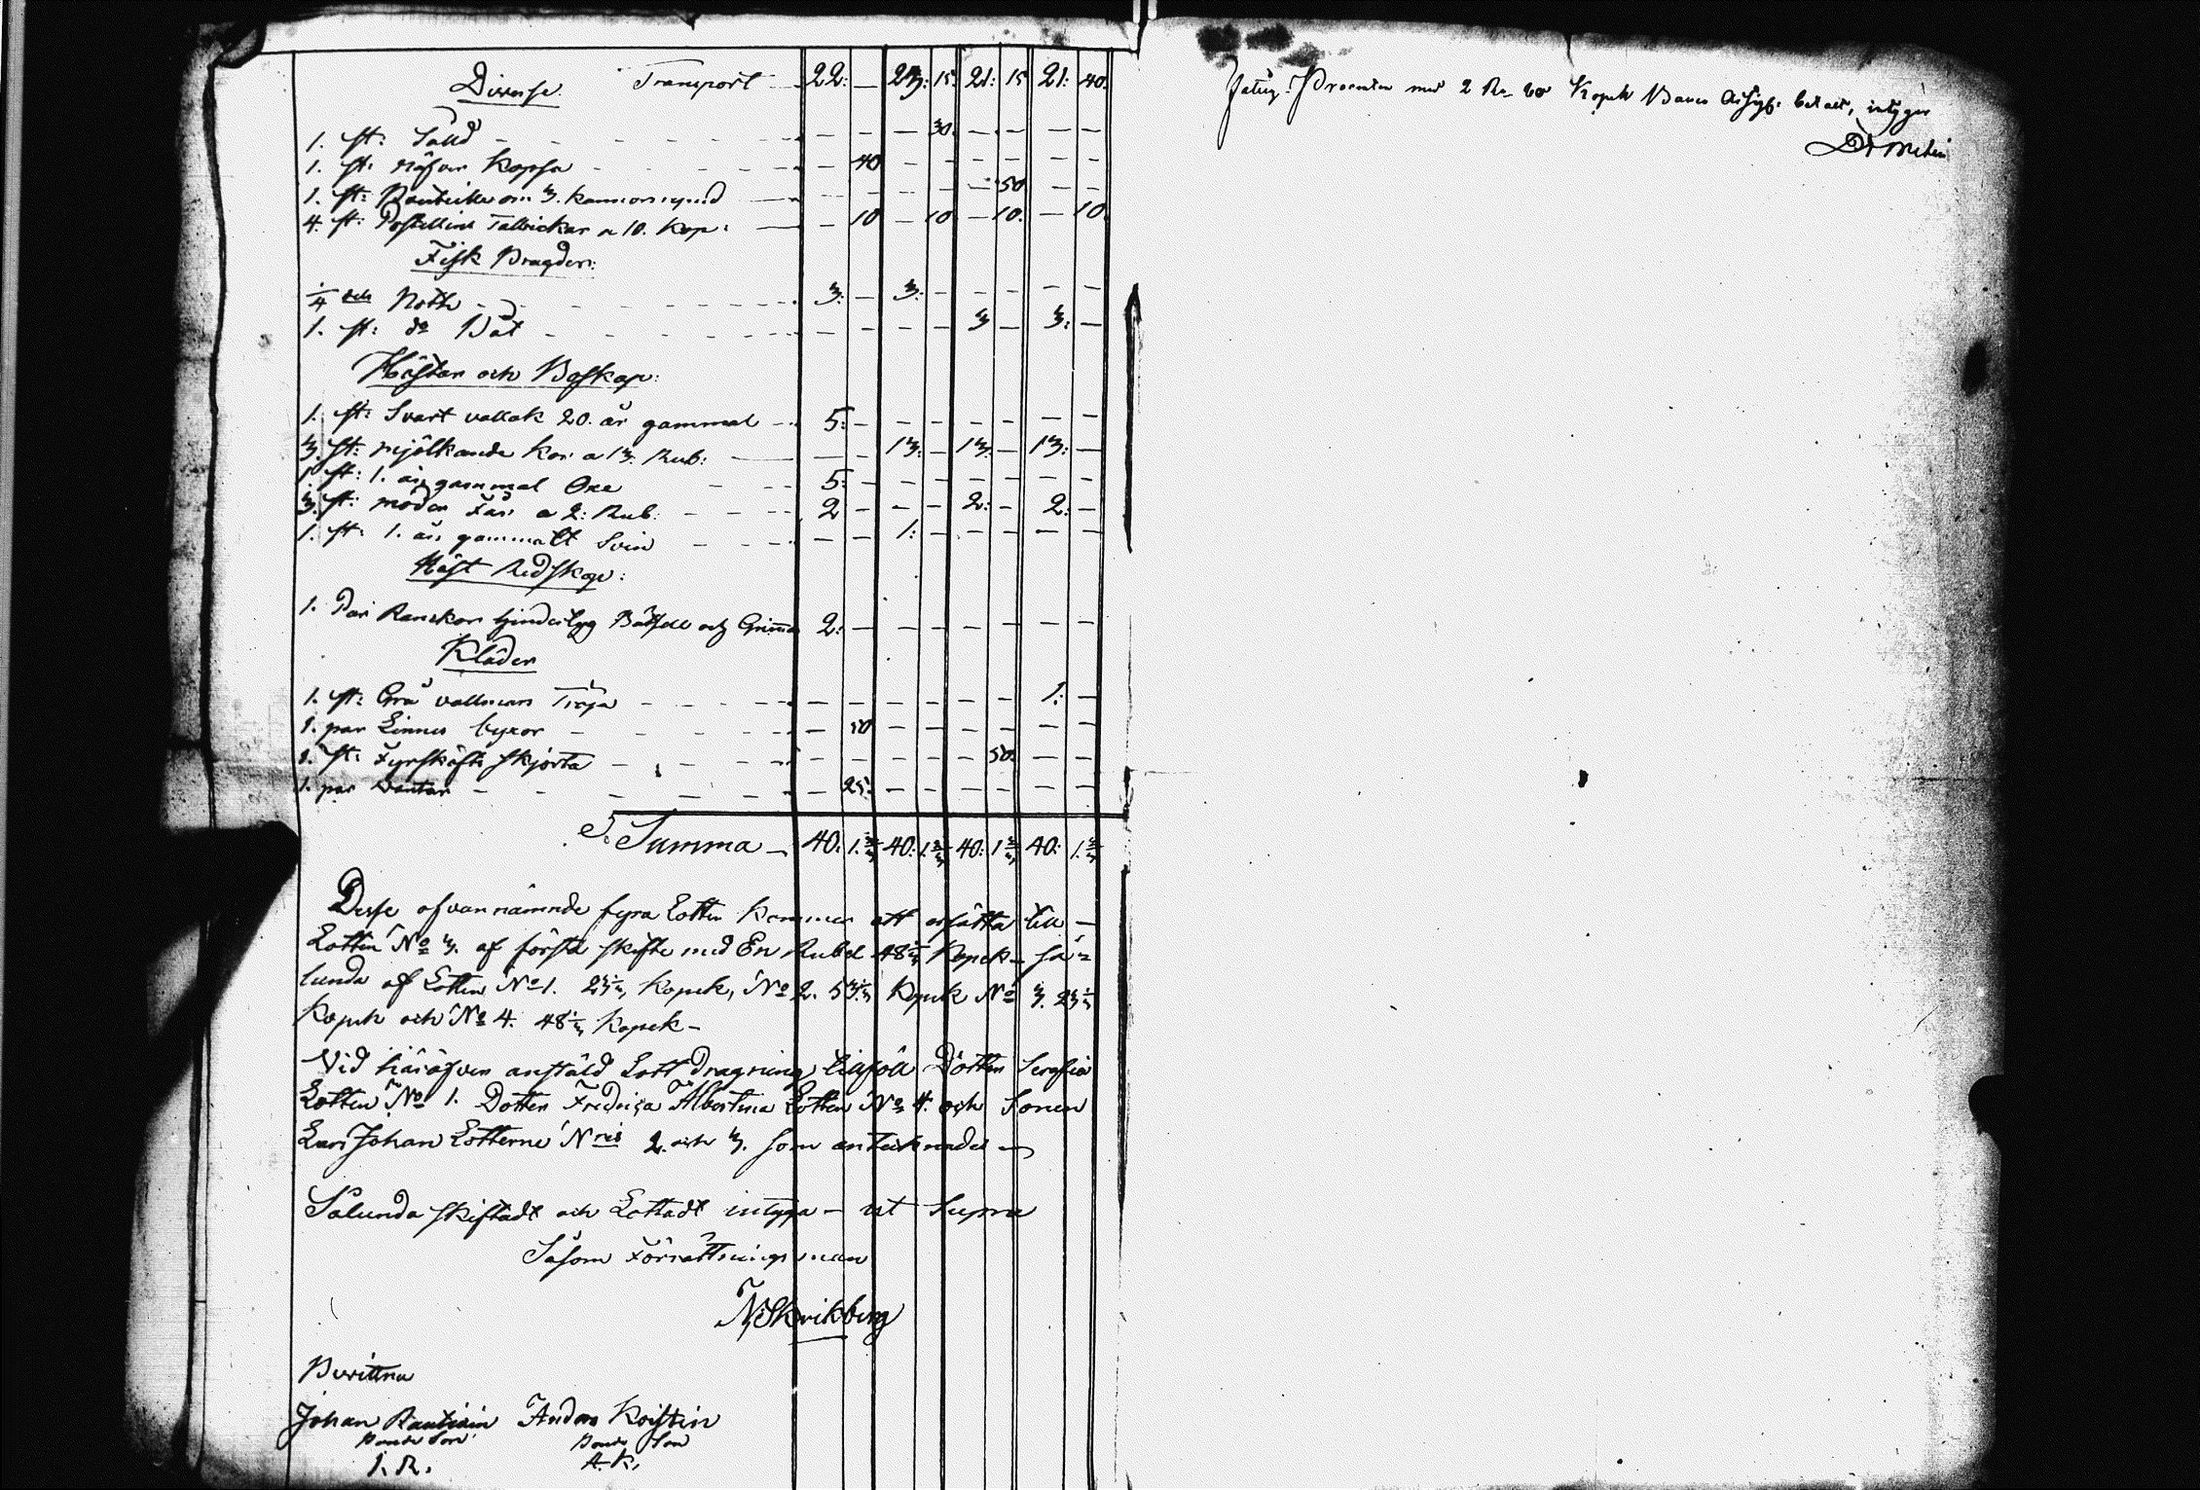 Diverse. Transport — 22: — 23: 15 21: 15 21: 40.
1. st: Såld — — — 30. — — — —
1. st: Näfver Kopsa — 40 — — — — — —
1. st: Bouteille om 3. kannors rymd — — — — — 50 — —
4. st: Postellins Tallrickar a 10. Kop: — 10 — 10 — 10. — 10.
Fisk Bragder:
1/4 dels Noth 3: — 3: — — — — —
1. st: do Båt — — — — 3 — 3: —
Hästar och Boskap:
1. st: Svart vallak 20. år gammal 5: — — — — — — —
3. st: mjölkande Kor a 13. Rub: — — 13: — 13: — 13: —
1. st: 1. års gammal Oxe 5: — — — — — — —
3. st: moder Får a 2: Rub: 2 — — — 2: — 2: —
1. st: 1. års gammalt Svin — — 1: — — — — —
Häst Redskap:
1. Par Ranckor Bätsell och Grimma 2: — — — — — — —
Kläder
1. st: Grå vallmars Tröja — — — — — — 1: —
1. par Linnes byxor — 10 — — — — — —
1. st: Fyrskäfts skjorta — — — — — 50: — —
1. par Vantar — 25: — — — — — —
S: Summa — 40: 1.2/3 40: 1.2/3 40: 1 2/3 40: 1.2/3
Desse ofvannämnde fyra Lotter kommer att ersätta till —
Lotten No 3. af första skifte med En Rubel 48 1/3 Kopek — så-
lunda af Lotten No 1. 23 1/3 Kopek, No 2. 53 1/3 Kopek No 3. 23 1/3
Kopek och No 4. 48 1/3 Kopek —
Vid häröfver anstäld Lottdragning tillföll Dottren Serafia
Lotten No 1. Dotten Fredrica Albertina Lotten No 4. och Sonen
Lars Johan Lotterne Nris 2. och 3. som antecknades —
Sålunda skiftadt och Lottadt intyga — ut Supra
Såsom Förrättnings man
N. Skrikberg
Bevittna
Johan Rautiain Anders Koistin
Bonde Son Bonde Son
J. R. A. K.
Fattig Procenten med 2 Ru 20 Kopek Banco Assign: betalt, intygar